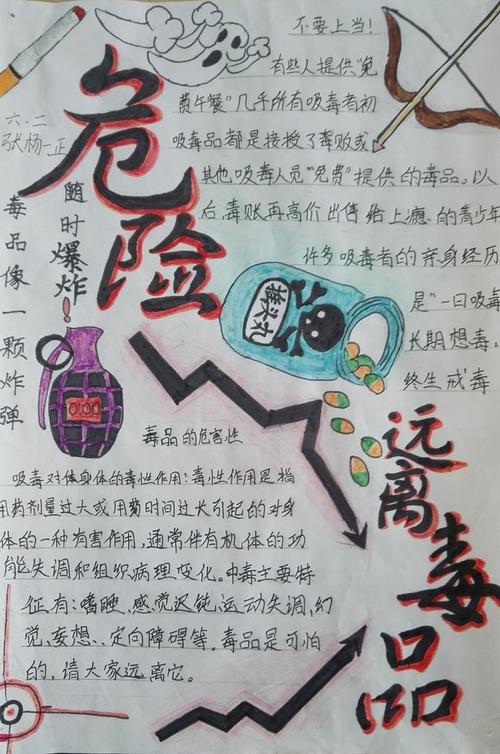 不要上当！
有些人提供“免
费午餐”几乎所有吸毒者初
吸毒品都是接授了毒败或
其他吸毒人员“免费”提供的毒品。以
后,毒账再高价出售给上瘾的青少年
许多吸毒者的亲身经历
是“一日吸毒
长期想毒。
终生戒毒
六.二
张杨一正
危险
随时爆炸！
毒品像一颗炸弹
摇头丸
0:00
毒品的危害性
吸毒对体身体的毒性作用:毒性作用是指
用药剂量过大或用药时间过长引起的对身
体的一种有害作用,通常伴有机体的功
能失调和组织病理变化。中毒主要特
征有:嗜睡、感觉迟钝、运动失调、幻
觉、妄想、、定向障碍等。毒品是可怕
的,请大家远离它。
远离毒品